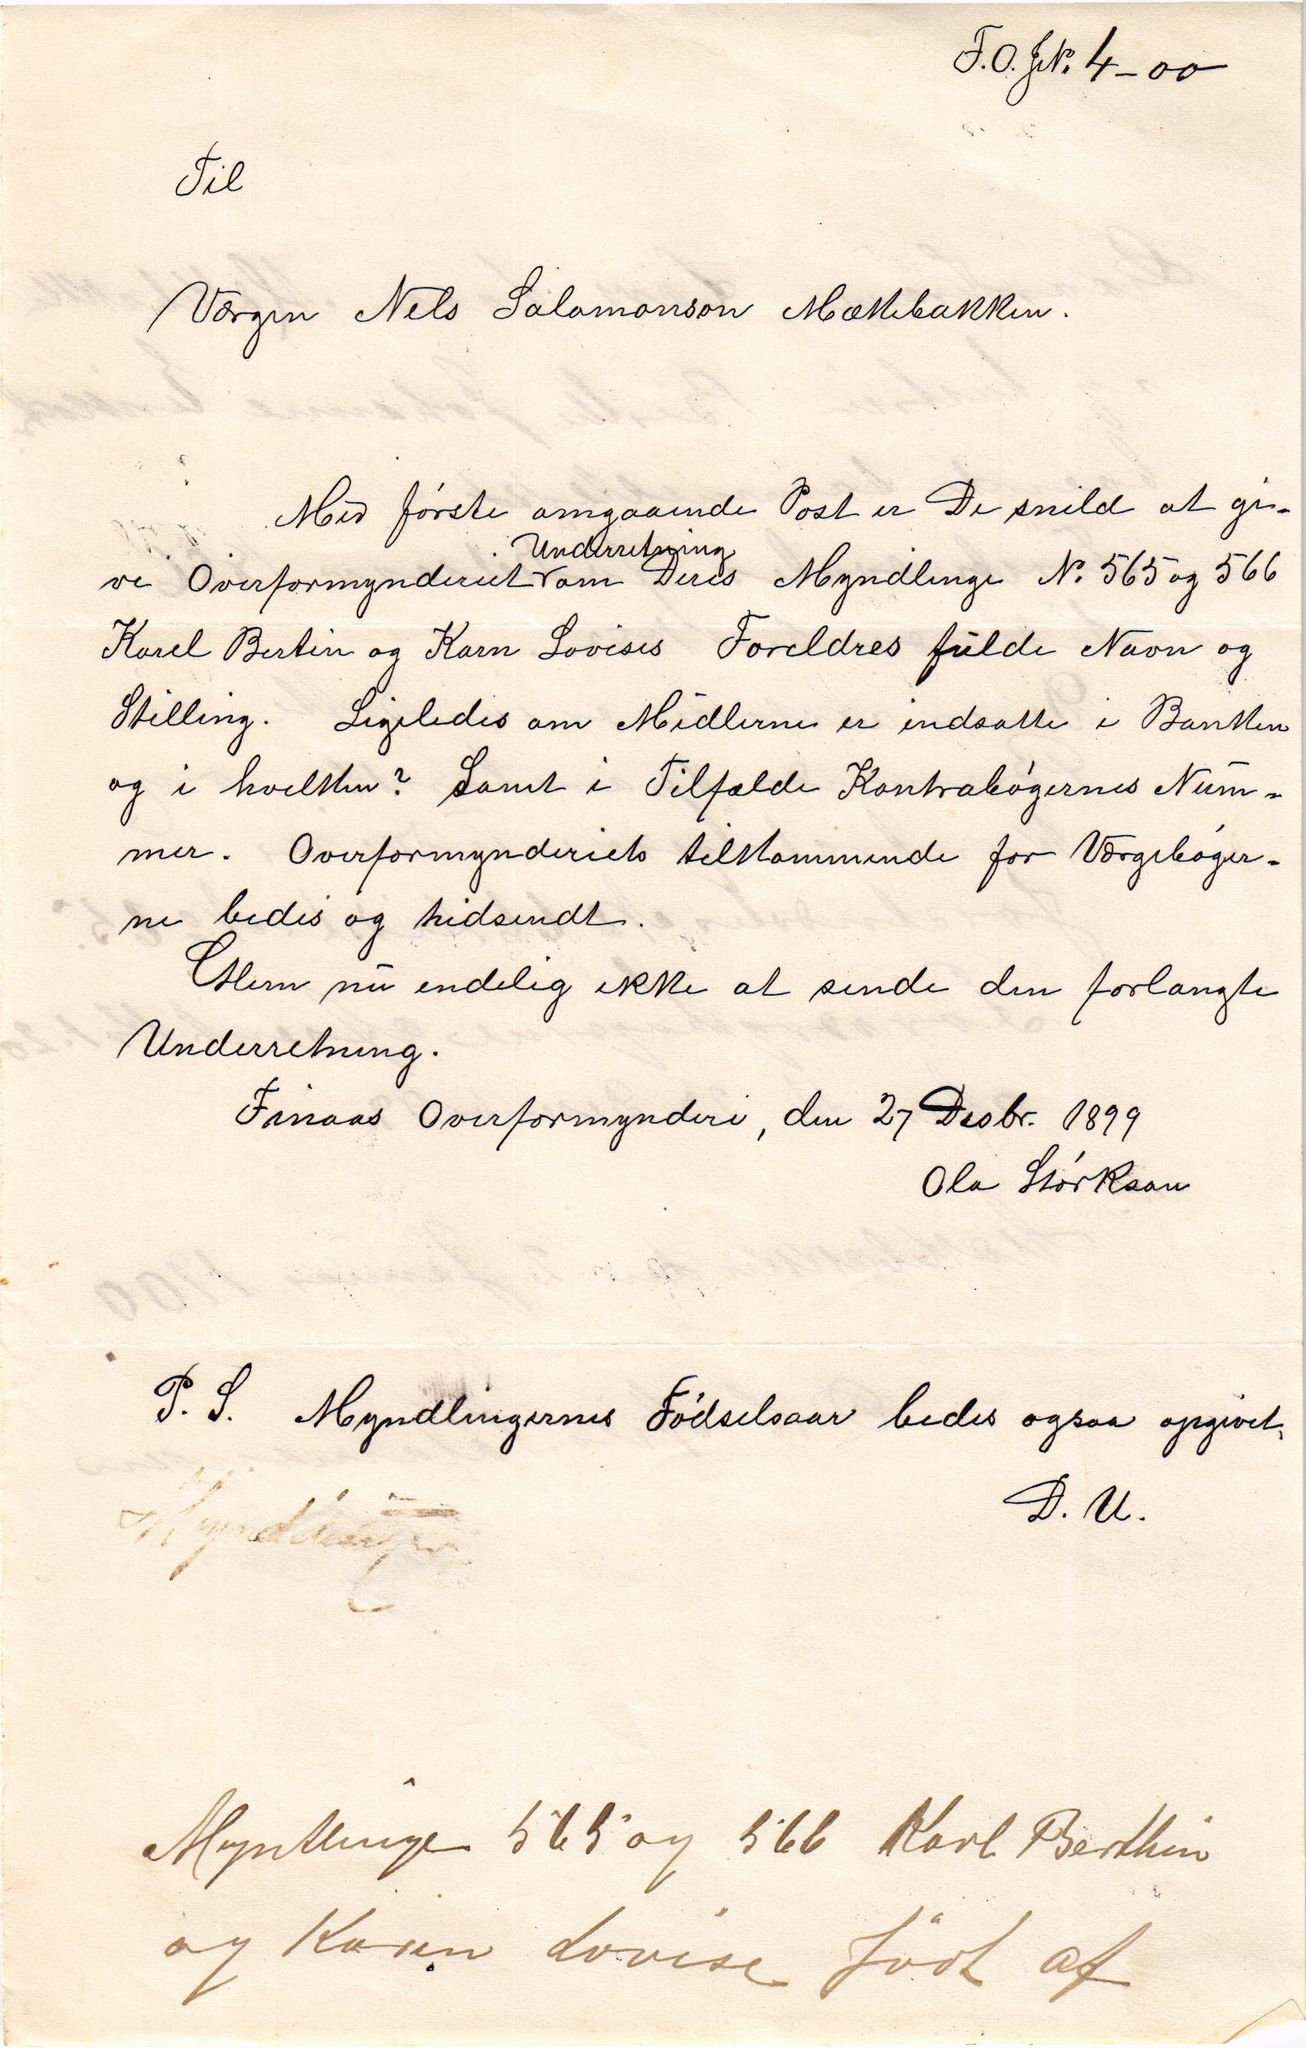 F.O. J.N. 4-00
Til
Værgen Nels Salamonson Mækkebakken.
Med første omgaaende Post er De snild at gi-
ve Overformynderiet Underretning om Deres Myndlinge N. 565 og 566
Karel Bertin og Karn Lovises Foreldres fulde Navn og
Stilling. Ligeledes om Midlerne er indsatte i Banken
og i hvelken? Samt i Tilfælde Kontrabøgernes Num-
mer. Overformynderiets tilkommende for Værgebøger-
ne bedes og hidsendt.
Glem nu endelig ikke at sende den forlangte
Underretning.
Finaas Overformynderi, den 27 Desbr. 1899
Ola Størkson
P. S. Myndlingernes Fødselsaar bedes ogsaa opgivet.
D. U.
Myndlinger
Myntlinge 565 og 566 Karl Berthin
og Karen Lovise født af